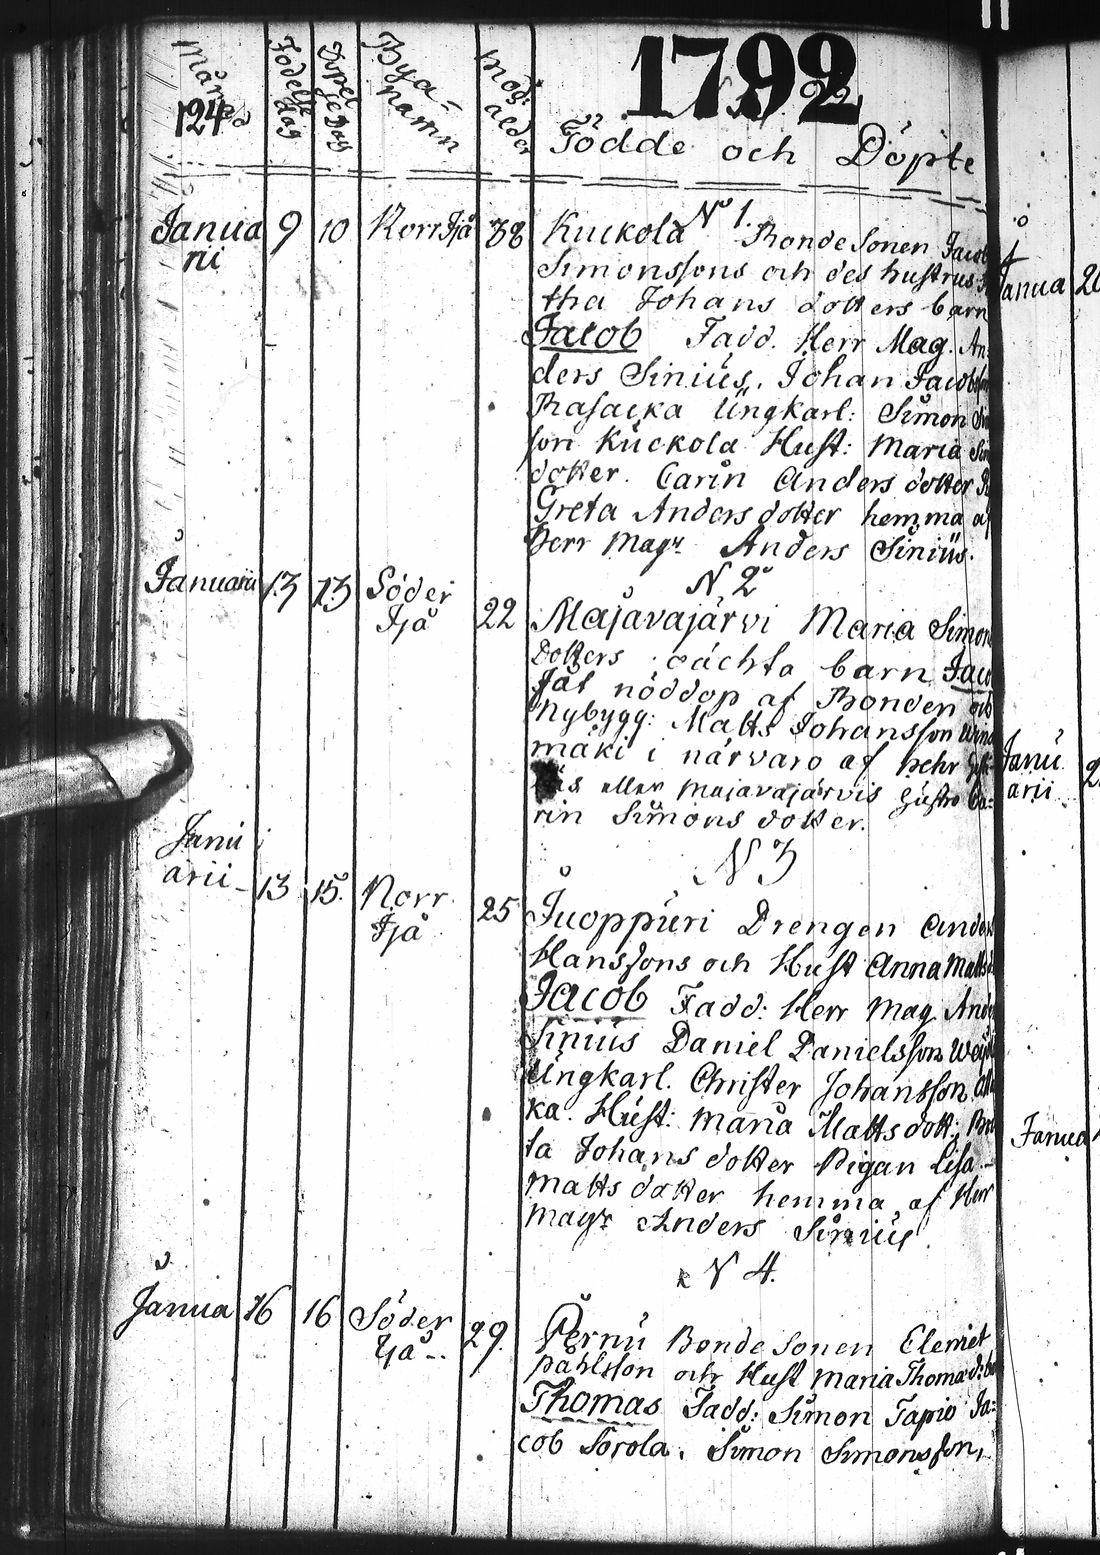 Månad
Födelse dag
Döpelse Dag
Bya-
namn
mod:
ålder
124
1792
Födde och Döpte
Janua 9 10 Norr Ijå 38
rii
No 1.
Kuckola BondeSonen Jacob
Simonssons och des hustrus
tha Johans dotters barn
Jacob Fadd. Herr Mag. An-
ders Sinius. Johan Jacobsson
Rasacka Ungkarl: Simon
son Kuckola Hust: Maria
dotter. Carin Anders dotter
Greta Anders dotter hemma af
Herr Magr Anders Sinius.
Januarii 13 13 Söder
Ijå 22
N 2
Majavajärvi Maria Simon
Dotters oächta barn Jaco
fåt nöddop af Bonden och
Nybygg: Matts Johansson
mäki i närvaro af Pehr
eller Majavajärvis hustro Ca-
rin Simons dotter.
N 3
Janu
arii 13 15. Norr
Ijå 25
Juoppuri Drengen Anders
Hanssons och Hust Anna Matts
Jacob Fadd: Herr Mag Anders
Sinius Daniel Danielsson
Ungkarl. Christer Johansson
ka. Hust: Maria Mattsdott: Bri
ta Johans dotter Pigan Lisa
Matts dotter hemma af Herr
Magr Anders Sinius
N 4.
Janua 16 16 Söder
Ijå 29.
Pernu Bonde Sonen Clemet
påhlsson och Hust Maria Thomæ
Thomas Fadd: Simon Tapio Ja-
cob Sorola. Simon Simonsson,
Janua 20
Janu
arii
Janua